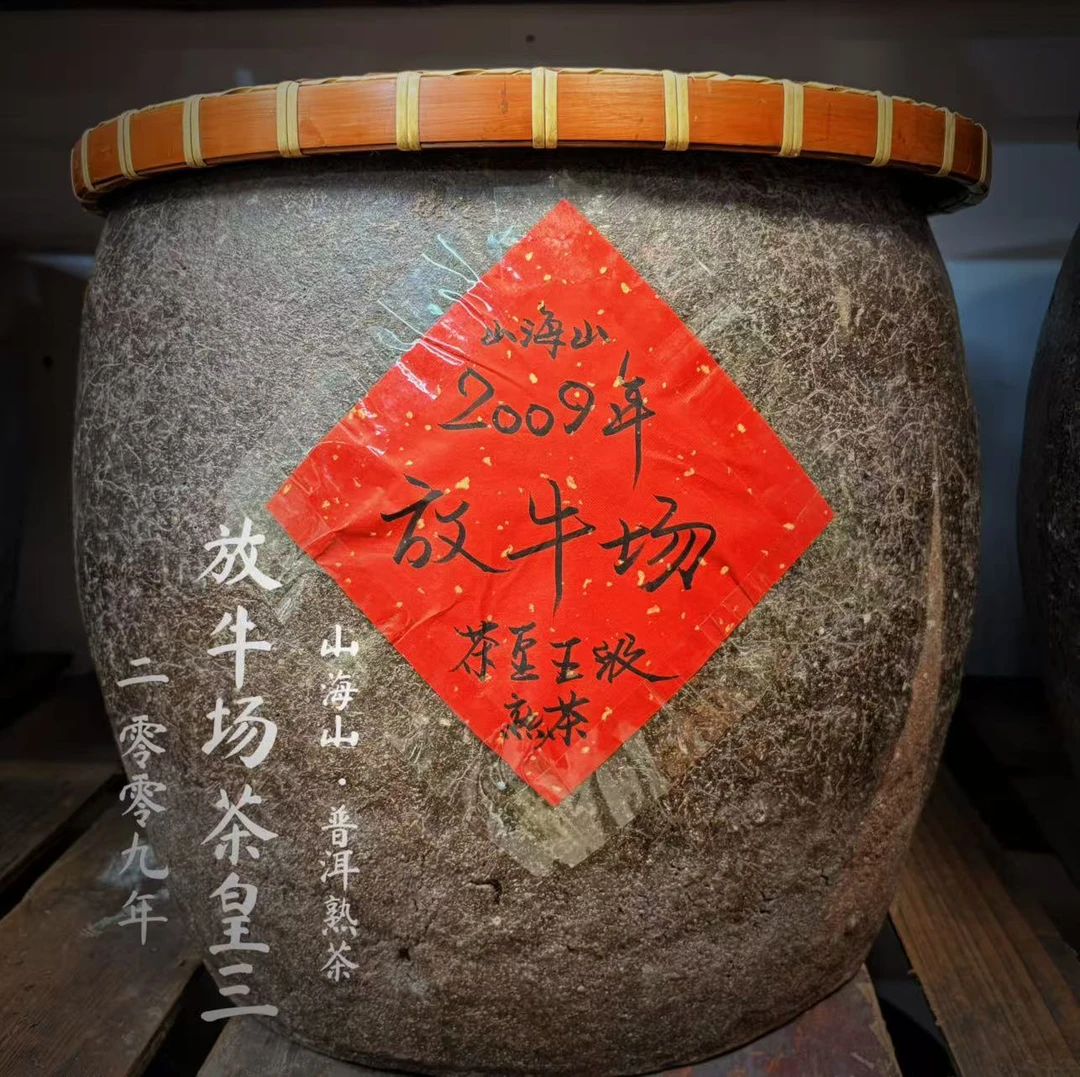 山海山
2009年
放牛场
茶皇王级
熟茶
山海山·普洱熟茶
放牛场茶皇三
二零零九年